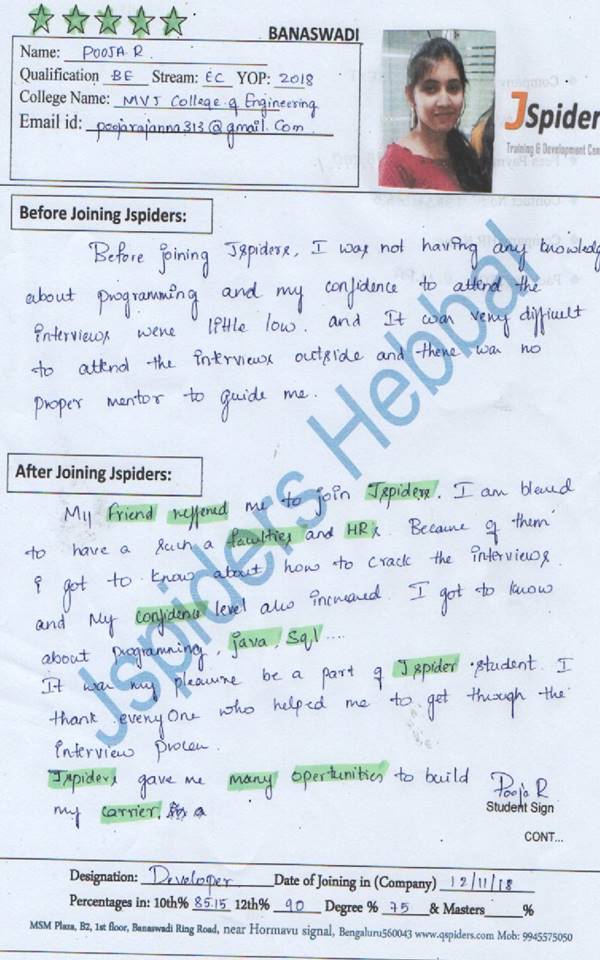 BANASWADI
Name: POOJA R
Qualification BE Stream: EC YOP: 2018
College Name: MVJ College of Engineering
Email id: poojarajanna313@gmail.com
JSpider
Training & Development Cen
Before Joining Jspiders:
Before joining Jspiders, I was not having any knowledg
about programming and my confidence to attend the
interviews were little low. and It was very difficult
to attend the interviews outside and there was no
proper mentor to guide me.
After Joining Jspiders:
My Friend reffered me to join Jspiders. I am blessed
to have a such a faculties and HRs. Because of them
i got to know about how to crack the interviews.
and My confidence level also increased. I got to know
about programming, java, Sql....
It was my pleasure be a part of Jspider student. I
thank everyOne who helped me to get through the
interview process.
Jspiders gave me many opertunities to build
my carrier.
Pooja R
Student Sign
CONT...
Jspiders Hebbal
Designation: Developer Date of Joining in (Company) 12/11/18
Percentages in: 10th% 85.15 12th% 90 Degree % 75 & Masters %
MSM Plaza, B2, 1st floor, Banaswadi Ring Road, near Hormavu signal, Bengaluru560043 www.qspiders.com Mob: 9945575050